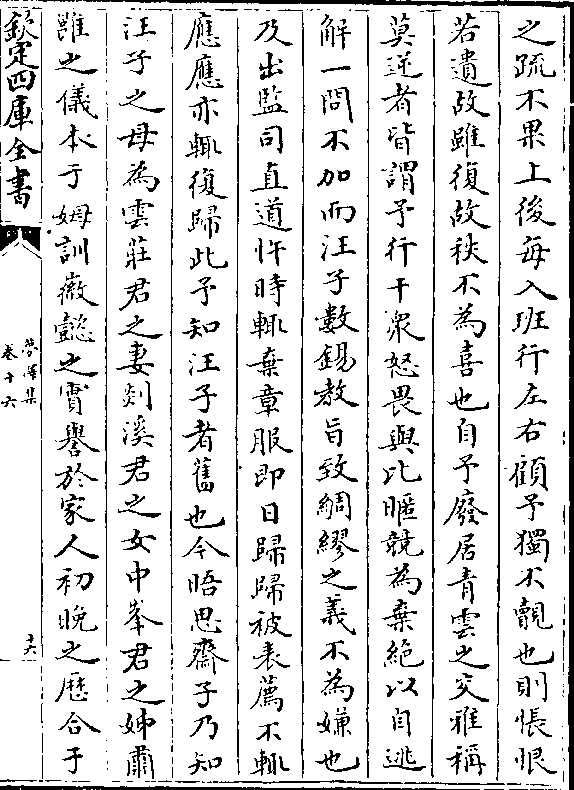 之疏不果上後每入班行左右顧予獨不覿也則悵恨
若遺故雖復故秩不為喜也自予廢居青雲之交雅稱
莫逆者皆謂予行干衆怒畏與比暱競為棄絶以自逃
解一問不加而汪子數錫教旨致綢繆之義不為嫌也
及出監司直道忤時輒棄章服即日歸歸被表薦不輒
應應亦輒復歸此予知汪子者舊也今晤思齋子乃知
汪子之母為雲莊君之妻剡溪君之女中峯君之姊肅
雝之儀本于姆訓徽懿之實譽於家人初晚之歴合于
欽定四庫全書
夢澤集
卷十六
十六